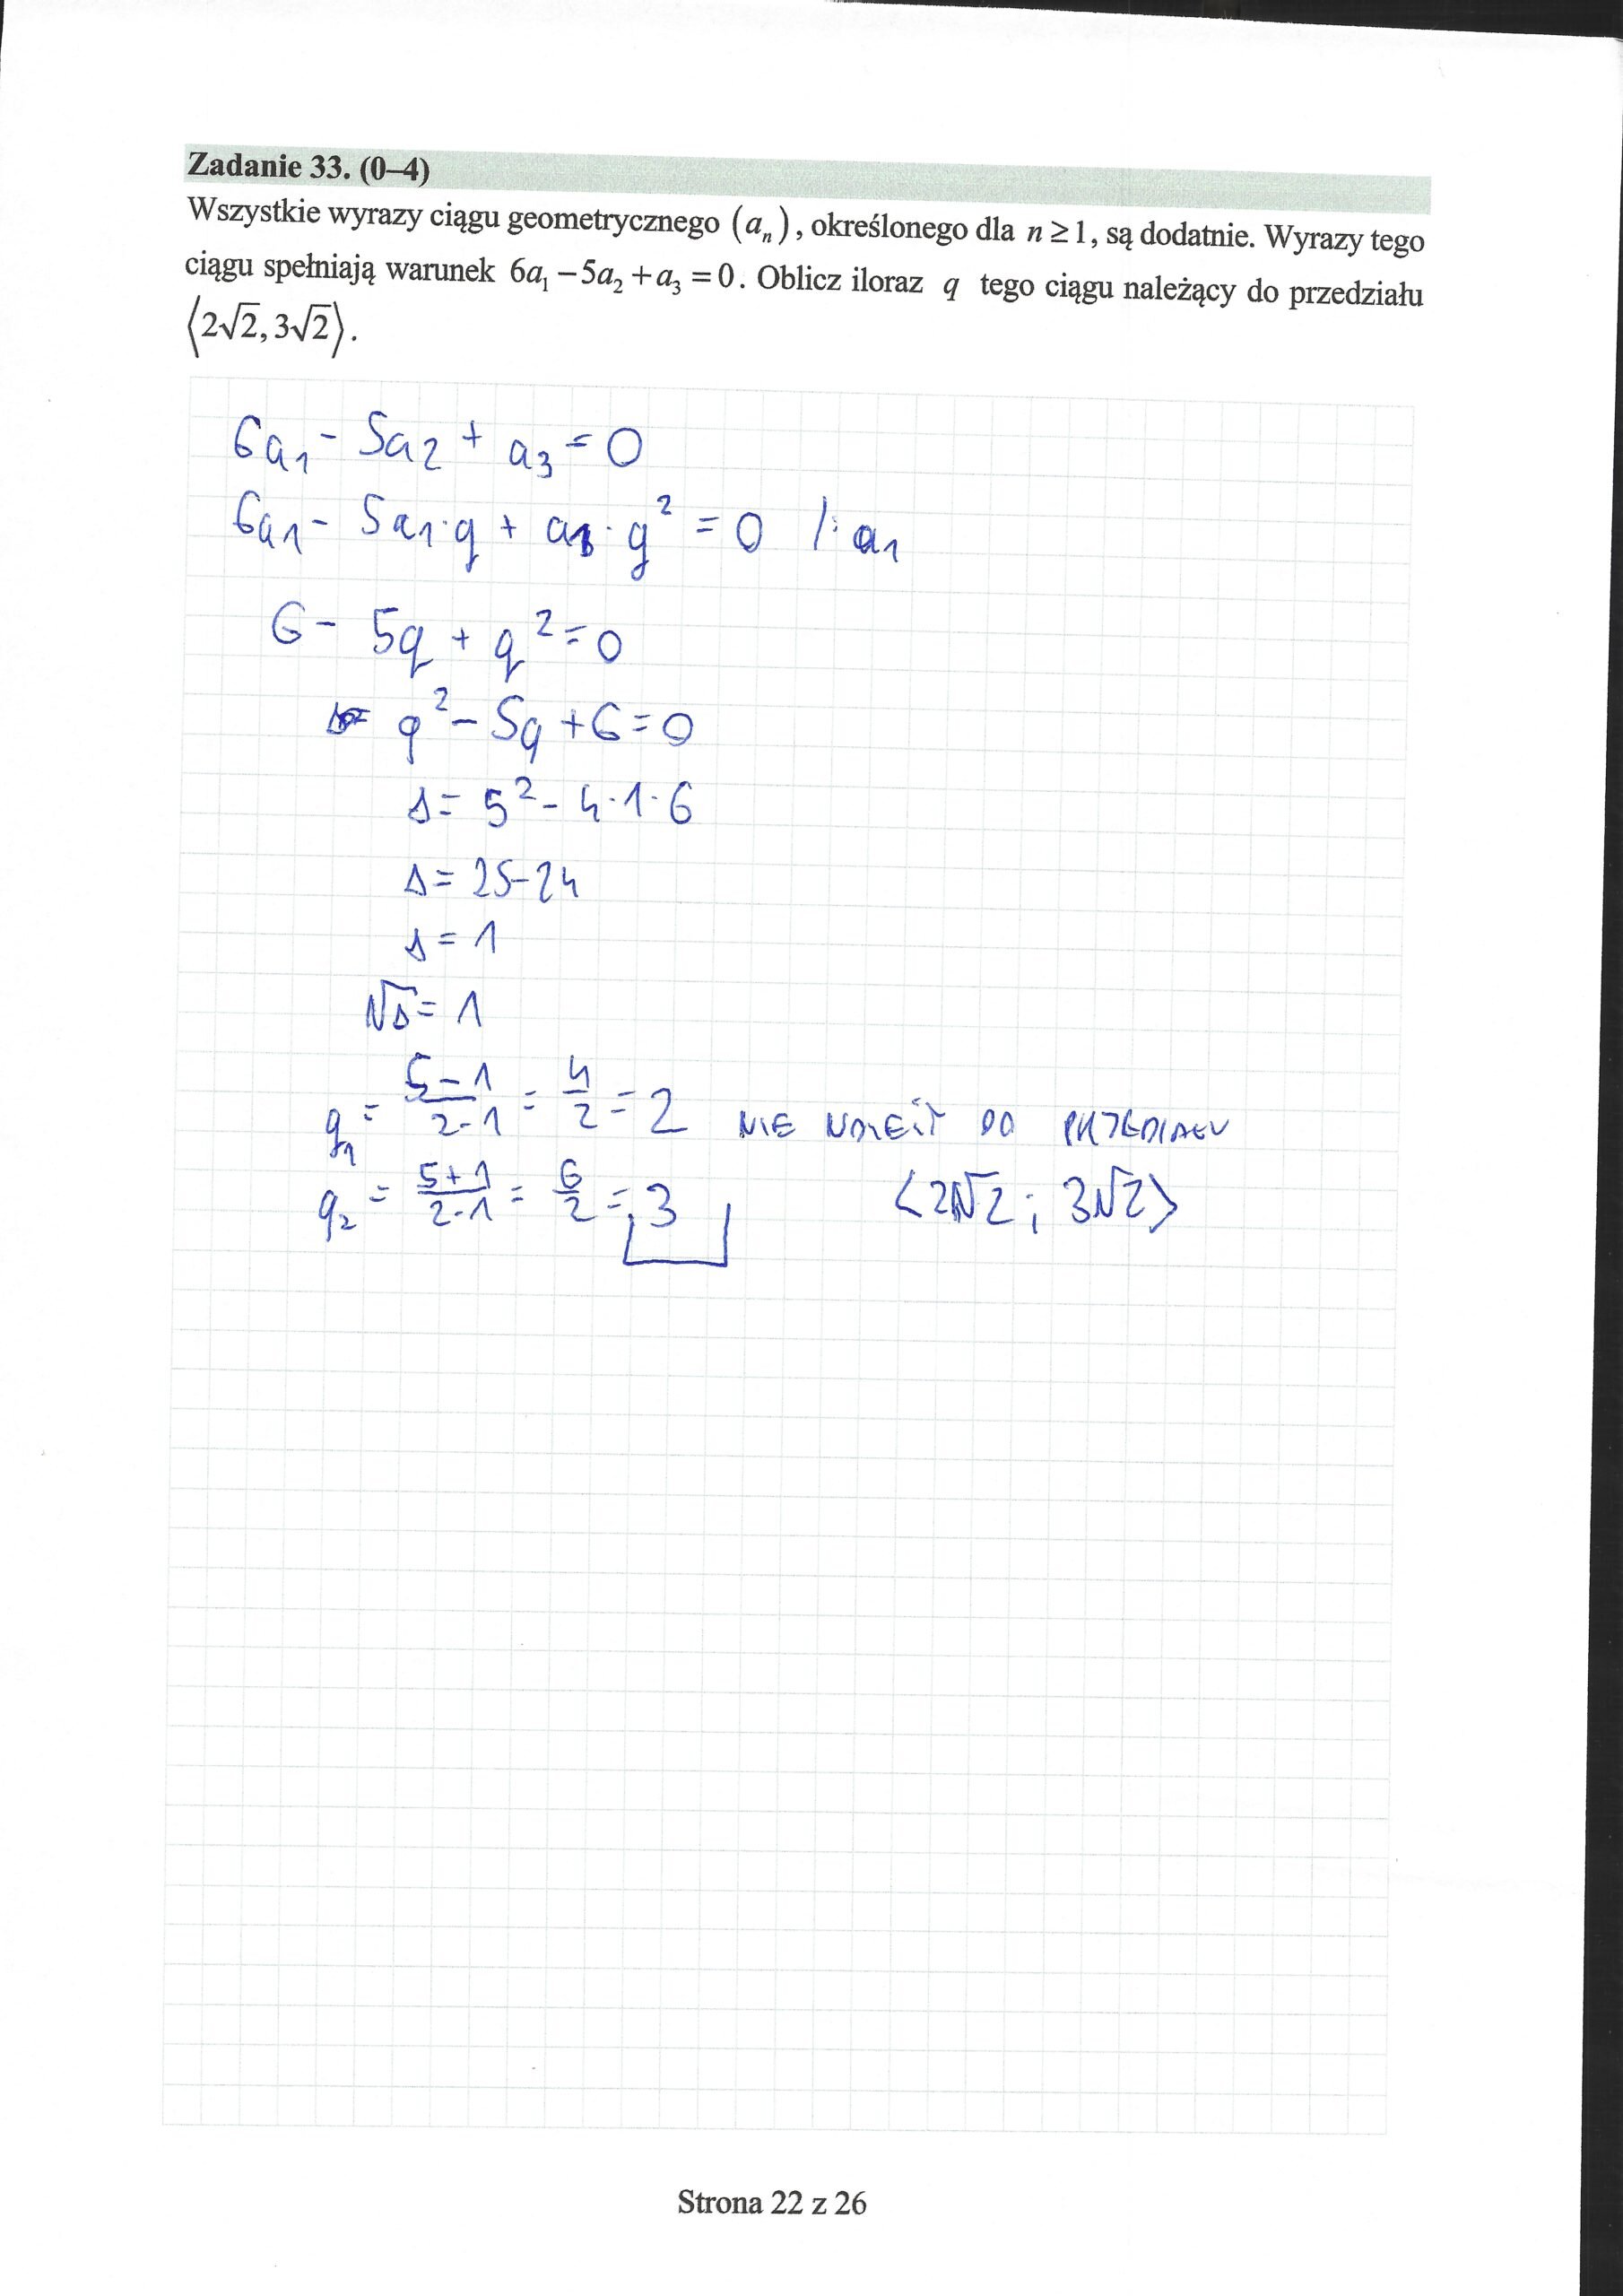 Zadanie 33. (0–4)
Wszystkie wyrazy ciągu geometrycznego (aₙ), określonego dla n ≥ 1, są dodatnie. Wyrazy tego
ciągu spełniają warunek 6a₁ − 5a₂ + a₃ = 0. Oblicz iloraz q tego ciągu należący do przedziału
⟨2√2, 3√2⟩.
6a₁ - 5a₂ + a₃ = 0
6a₁ - 5a₁·q + a₁·q² = 0 /: a₁
6 - 5q + q² = 0
q² - 5q + 6 = 0
Δ = 5² - 4·1·6
Δ = 25-24
Δ = 1
√Δ = 1
q₁ = (5-1)/(2·1) = 4/2 = 2 NIE NALEŻY DO PRZEDIAŁU
q₂ = (5+1)/(2·1) = 6/2 = 3 ⟨2√2; 3√2⟩
Strona 22 z 26